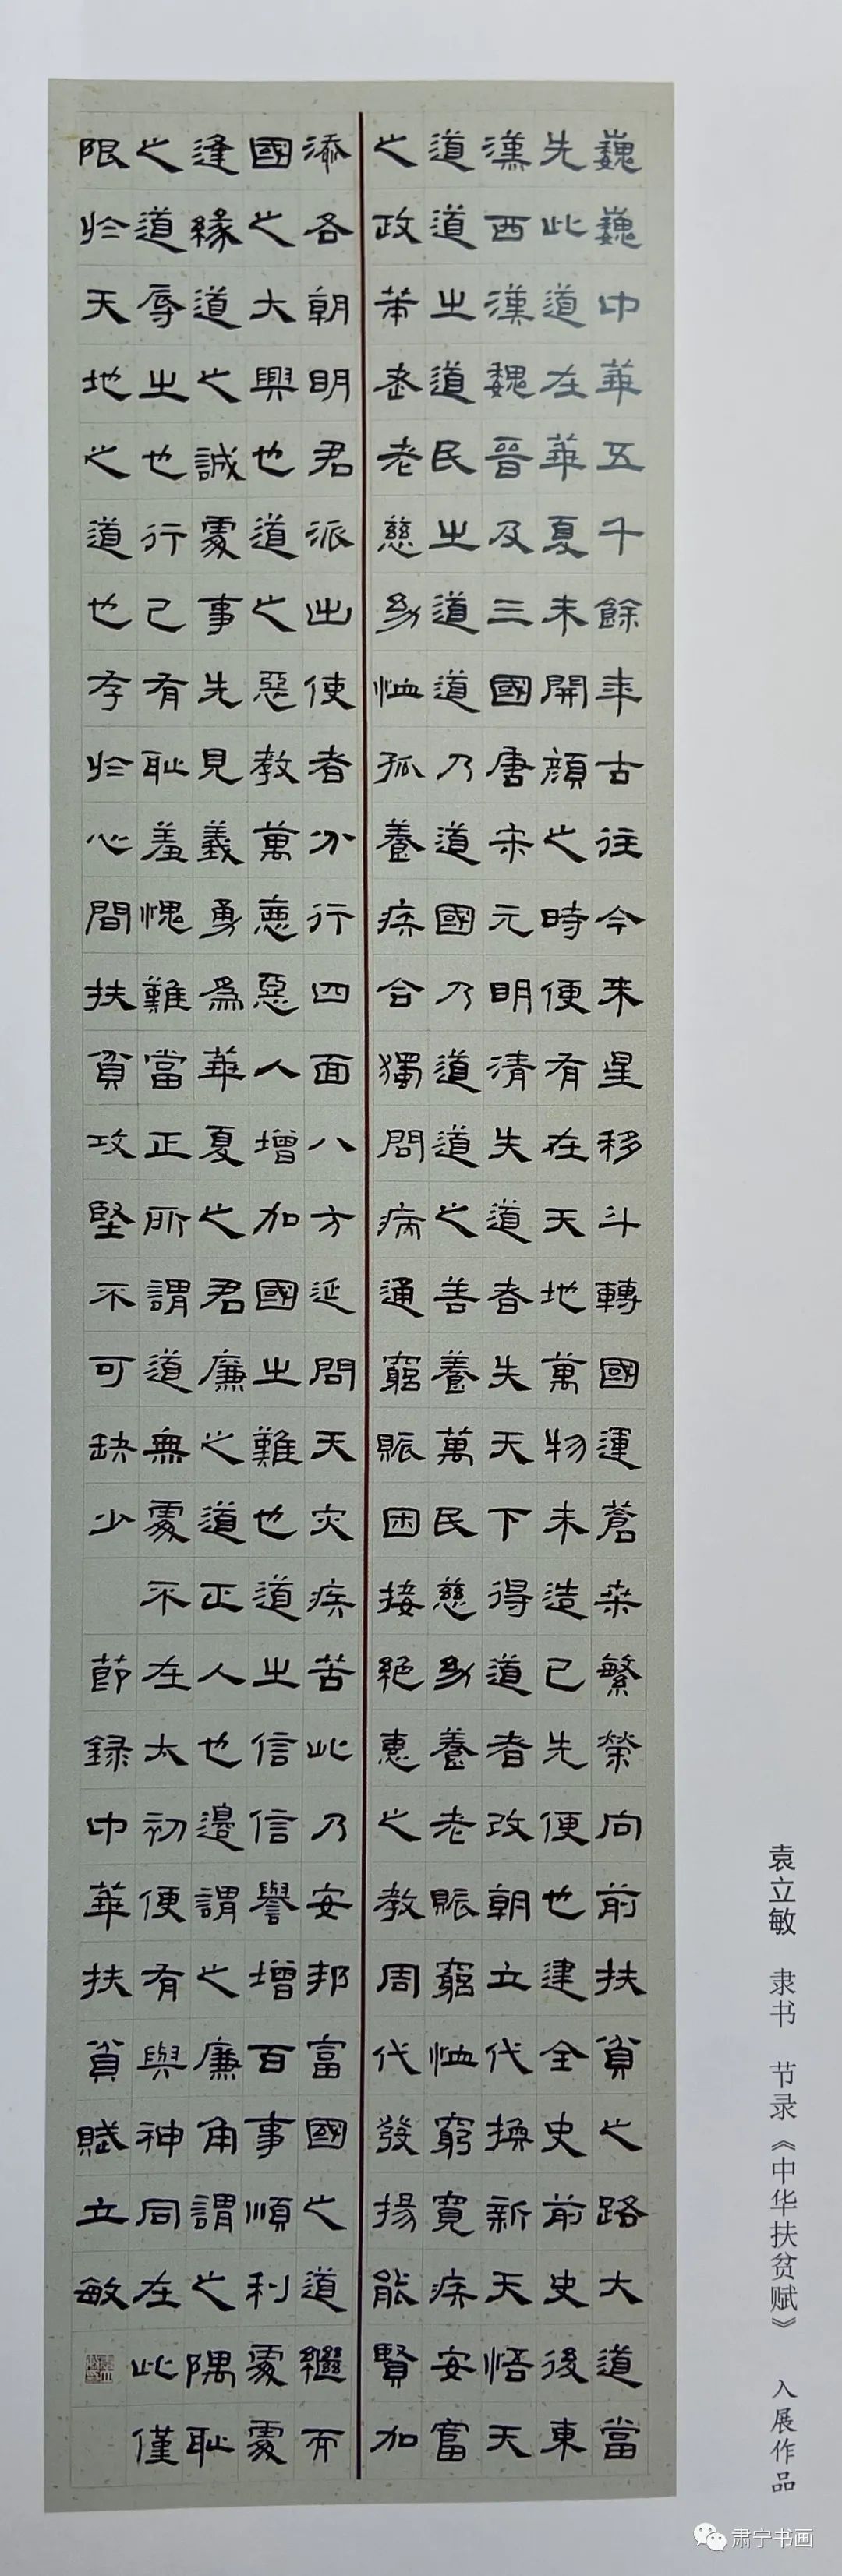 巍巍中華五千餘年古往今來星移斗轉國運蒼桑繁榮向前扶貧之路大道當
先此道在華夏未開顏之時便有在天地萬物未造已先便也建全史前史後東
漢西漢魏晉及三國唐宋元明清失道者失天下得道者改朝立代換新天悟天
道道之道民之道道乃道國乃道道之善養萬民慈幼養老賑窮恤窮寬疾安富
之政 老慈幼恤孤養疾合獨問病通窮賑困接絕惠之教周代發揚能賢加
添各朝明君派出使者分行四面八方延問天灾疾苦此乃安邦富國之道繼而
國之大興也道之惡教萬惡惡人增加國之難也道之信信譽增百事順利處處
逢緣道之誠處事先見義勇為華夏之君廉之道正人也邊謂之廉角謂之隅恥
之道辱之也行己有恥羞愧難當正所謂道無處不在太初便有與神同在此僅
限於天地之道也存於心間扶貧攻堅不可缺少 節録中華扶貧賦立敏
袁立敏 隶书 节录《中华扶贫赋》 入展作品
肃宁书画